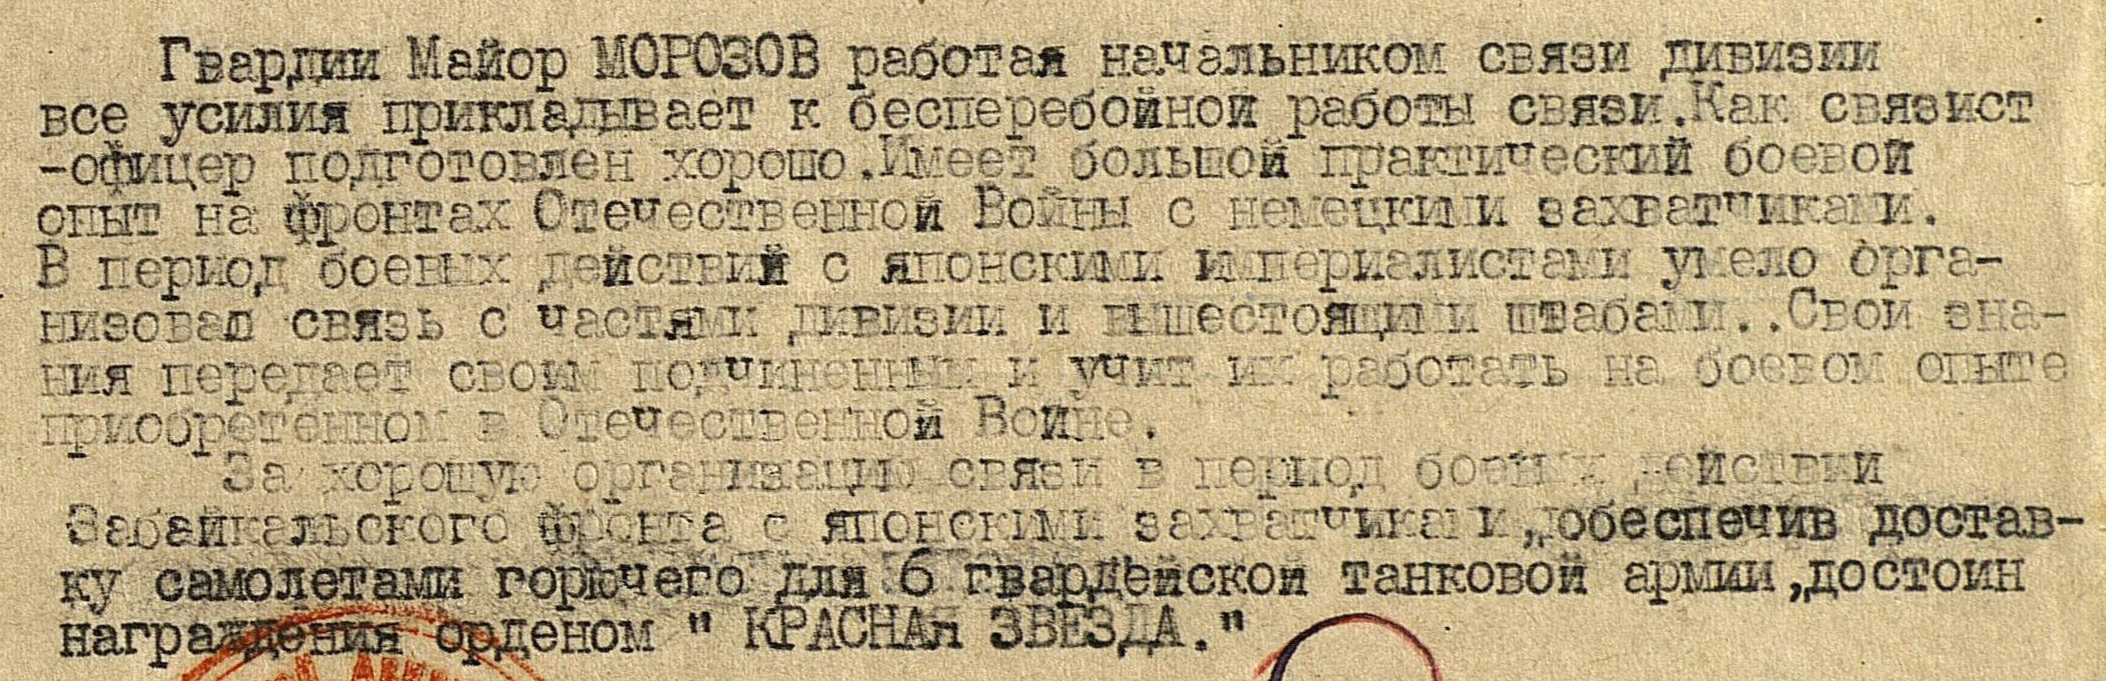 Гвардии Майор МОРОЗОВ работая начальником связи дивизии
все усилия прикладывает к бесперебойной работы связи.Как связист
-офицер подготовлен хорошо.Имеет большой практический боевой
опыт на фронтах Отечественной Войны с немецкими захватчиками.
В период боевых действий с японскими империалистами умело орга-
низовал связь с частями дивизии и вышестоящими штабами..Свои зна-
ния передает своим подчиненным и учит их работать на боевом опыте
приобретенном в Отечественной Войне.
За хорошую организацию связи в период боевых действий
Забайкальского фронта с японскими захватчиками, обеспечив достав-
ку самолетами горючего для 6 гвардейской танковой армии,достоин
награждения орденом " КРАСНАЯ ЗВЕЗДА."